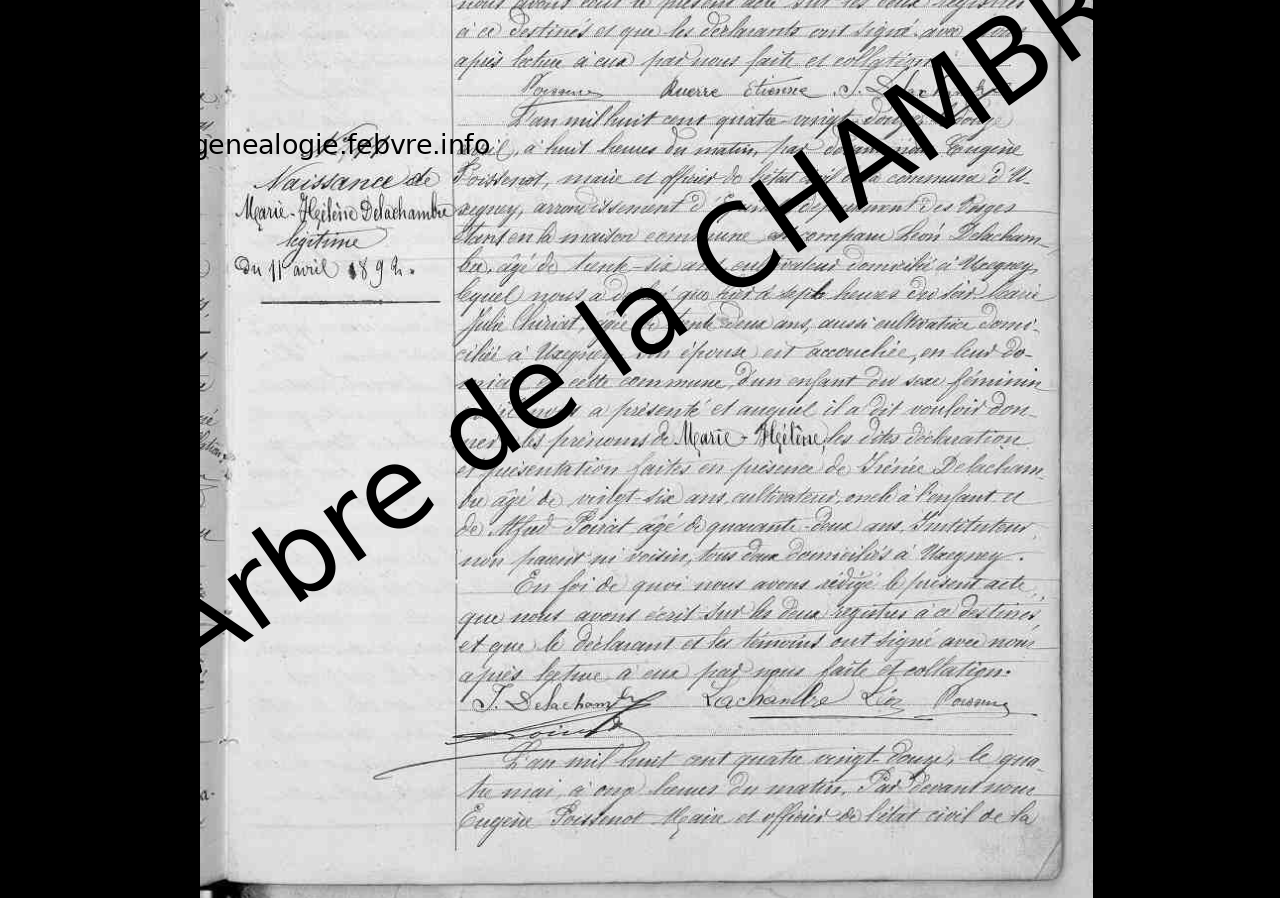 nous avons écrit le présent acte sur les deux registres
à ce destinés et que les déclarants ont signé avec nous
après lecture à eux par nous faite et collation
Poissenot Querre Etienne J. Delachambre
L'an mil huit cent quatre vingt douze, le douze
genealogie.febvre.info
avril, à huit heures du matin, par devant nous Eugène
Naissance de
Poissenot, maire et officier de l'état civil de la commune d'U-
Marie-Hélène Delachambre
xegney, arrondissement d'Epinal, département des Vosges
légitime
étant en la maison commune, est comparu Léon Delacham-
du 11 avril 1892.
bre, âgé de trente-six ans, cultivateur domicilié à Uxegney,
lequel nous a déclaré que hier à sept heures du soir Marie
Julie Thiriat, âgée de trente deux ans, aussi cultivatrice domi-
ciliée à Uxegney, son épouse est accouchée, en leur do-
micile en cette commune, d'un enfant du sexe féminin
qu'il nous a présenté et auquel il a dit vouloir don-
ner les prénoms de Marie-Hélène, les dites déclaration
et présentation faites en présence de Irénée Delacham-
bre âgé de vingt-six ans, cultivateur, oncle à l'enfant et
de Alfred Poirat âgé de quarante-deux ans, Instituteur,
non parent ni voisin, tous deux domiciliés à Uxegney.
En foi de quoi nous avons rédigé le présent acte,
que nous avons écrit sur les deux registres à ce destinés
et que le déclarant et les témoins ont signé avec nous
après lecture à eux par nous faite et collation.
J. Delachambre Lachambre Léon Poissenot
L'an mil huit cent quatre vingt-douze, le qua-
tre mai, à onze heures du matin, Par devant nous
Eugène Poissenot Maire et officier de l'état civil de la
Arbre de la CHAMBR